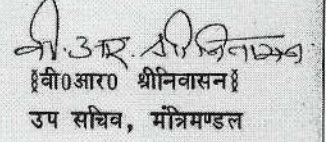 वी. आर. श्रीनिवासन
§वी0आर0 श्रीनिवासन§
उप सचिव, मंत्रिमण्डल